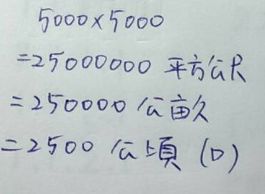 5000×5000
=25000000 平方公尺
=250000 公畝
=2500 公頃 (D)